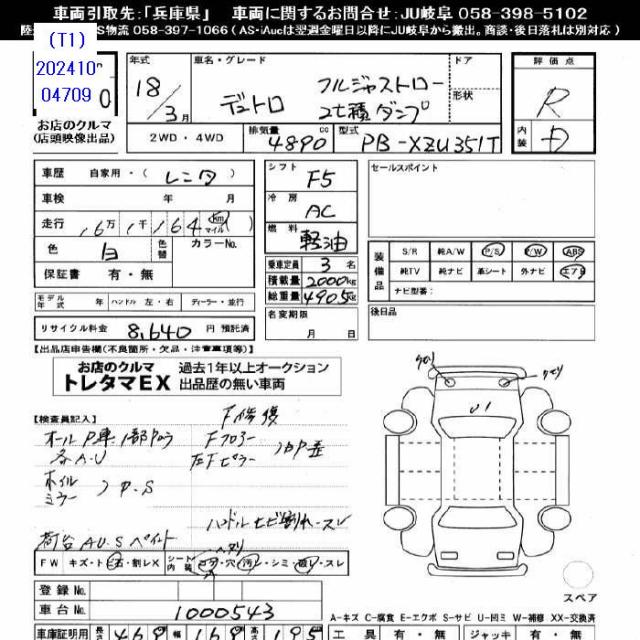 車両引取先:「兵庫県」 車両に関するお問合せ:JU岐阜 058-398-5102
S物流 058-397-1066 (AS-iAucは翌週金曜日以降にJU岐阜から搬出。商談・後日落札は別対応)
(T1)
04709
お店のクルマ
(店頭映像出品)
年式 18/3月
車名・グレード デュトロ フルジャストロー 2t積ダンプ
ドア
形状
評価点 R
内装 D
2WD・4WD
排気量 4890cc
型式 PB-XZU351T
車歴 自家用・(レンタ)
車検 年 月
走行 16万1千164 km マイル
色 白 色替 カラーNo.
保証書 有・無
モデル年式 年 ハンドル 左・右 ディーラー・並行
リサイクル料金 8,640 円 預託済
シフト F5
冷房 AC
燃料 軽油
乗車定員 3 名
積載量 2000kg
総重量 4905kg
名変期限
月 日
セールスポイント
装備品 S/R 純A/W P/S P/W ABS
純TV 純ナビ 革シート 外ナビ エアB
ナビ型番:
後日品
【出品店申告欄(不良箇所・欠品・注意事項等)】
お店のクルマ
トレタマEX
過去1年以上オークション
出品歴の無い車両
【検査員記入】
F修復
各AU
Fフロアー
左Fピラー
ホイル
ミラー P.S
ハンドルヒビ割れ・スレ
荷台AU.Sペイント
FW キズ・ト石・割レX シート内装 コゲ・穴・汚レ・シミ・破レ・スレ
U1
スペア
登録No.
車台No. 1000543
A-キズ C-腐食 E-エクボ S-サビ U-凹ミ W-補修 XX-交換済
車庫証明用 長さ 469 幅 169 高さ 195
工具 有・無 ジャッキ 有・無